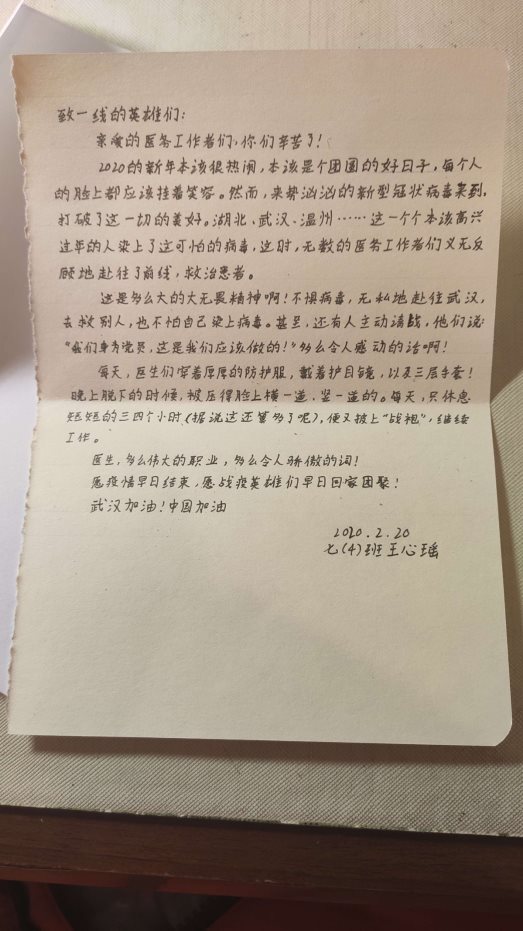 致一线的英雄们:
亲爱的医务工作者们,你们辛苦了!
2020的新年本该很热闹,本该是个团圆的好日子,每个人
的脸上都应该挂着笑容。然而,来势汹汹的新型冠状病毒袭到,
打破了这一切的美好。湖北、武汉、温州……这一个个本该高兴
过年的人染上了这可怕的病毒,这时,无数的医务工作者们义无反
顾地赴往了前线,救治患者。
这是多么大的大无畏精神啊!不惧病毒,无私地赴往武汉,
去救别人,也不怕自己染上病毒。甚至,还有人主动请战,他们说:
“我们身为党员,这是我们应该做的!”多么令人感动的话啊!
每天,医生们穿着厚厚的防护服,戴着护目镜,以及三层手套!
晚上脱下的时候,被压得脸上横一道、竖一道的。每天,只休息
短短的三四个小时(据说这还算多了呢),便又披上“战袍”,继续
工作。
医生,多么伟大的职业,多么令人骄傲的词!
愿疫情早日结束,愿战疫英雄们早日回家团聚!
武汉加油!中国加油
2020.2.20
七(4)班王心瑶